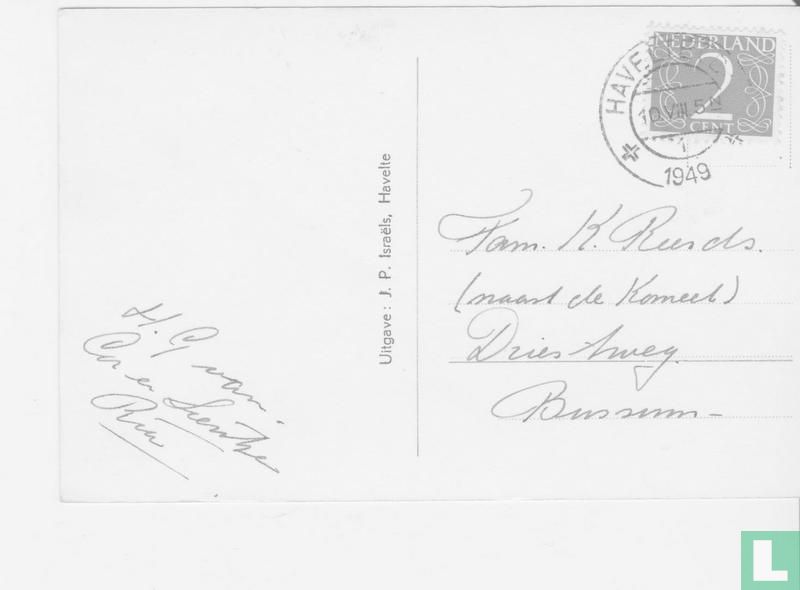 NEDERLAND
2
CENT
HAVELTE
10.VIII.5N
1949
Uitgave: J. P. Israëls, Havelte
Fam. K.
(naast de Komeet)
Driestweg
Bussum-
H. G van.
Cor en
Ria
L